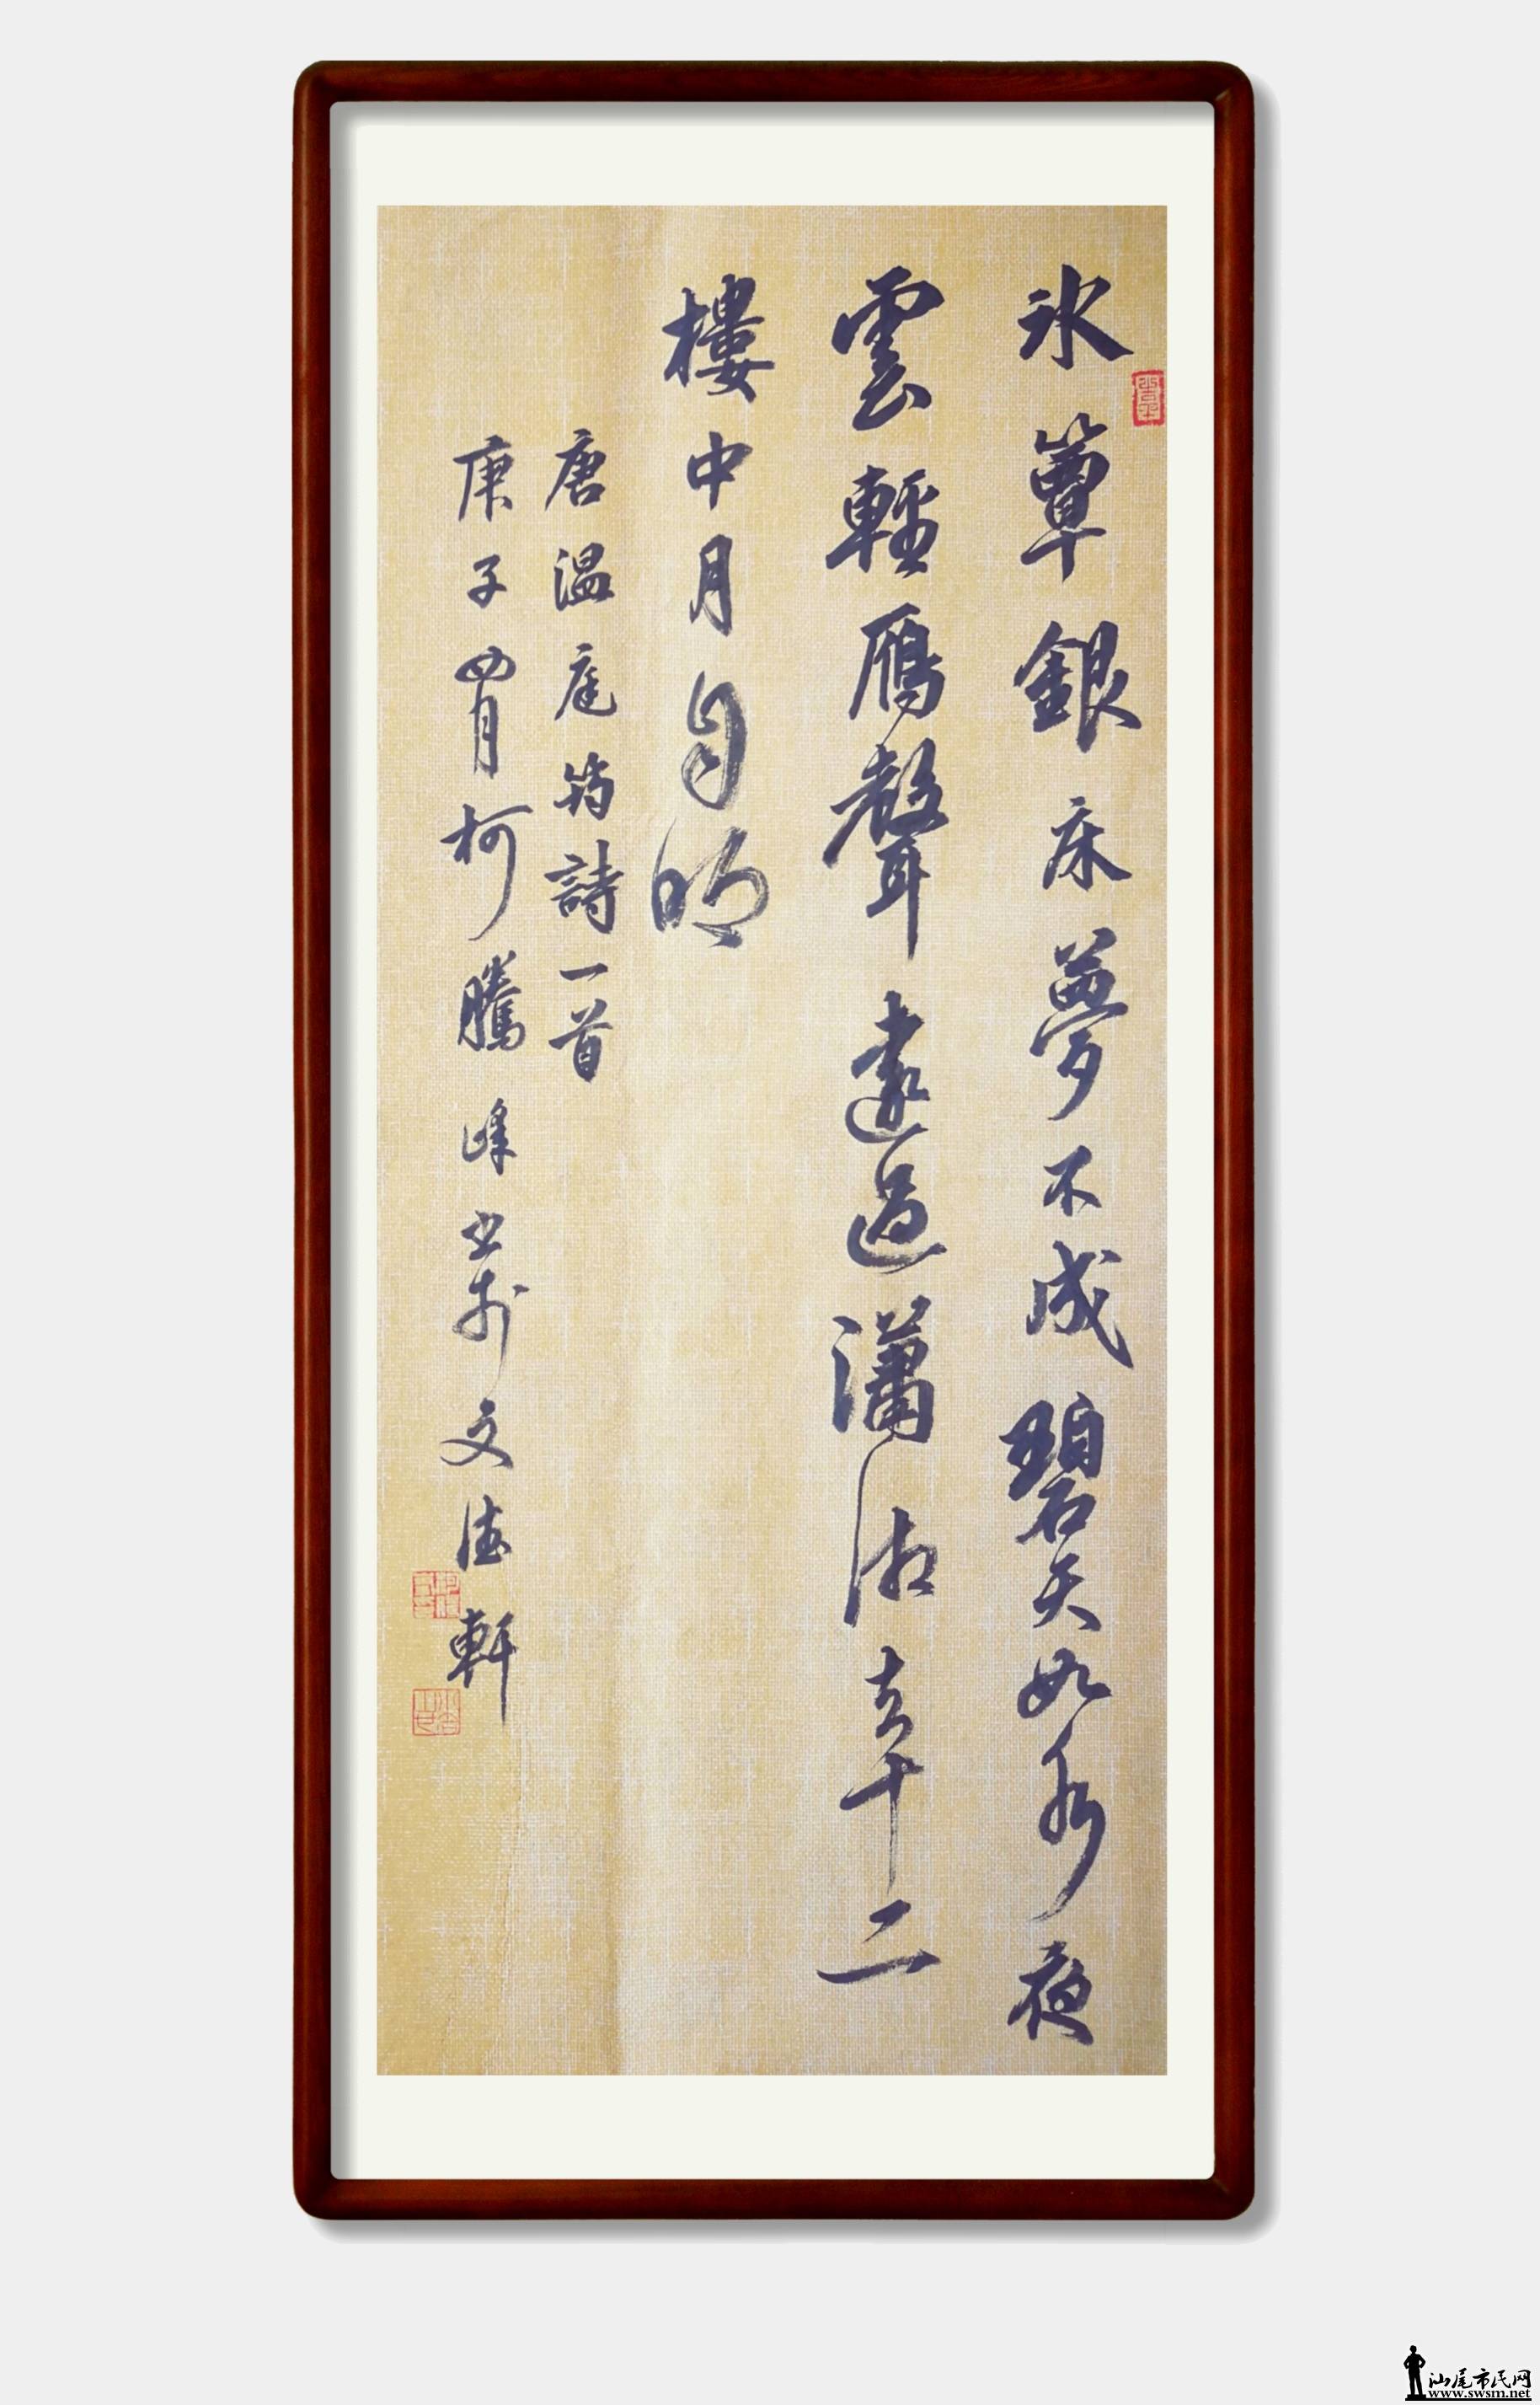 氷簟銀床夢不成碧天如水夜
雲輕雁聲遠過瀟湘去十二
樓中月自明
唐温庭筠詩一首
庚子四月柯騰峰書於文德軒
汕尾市民网
www.swsm.net